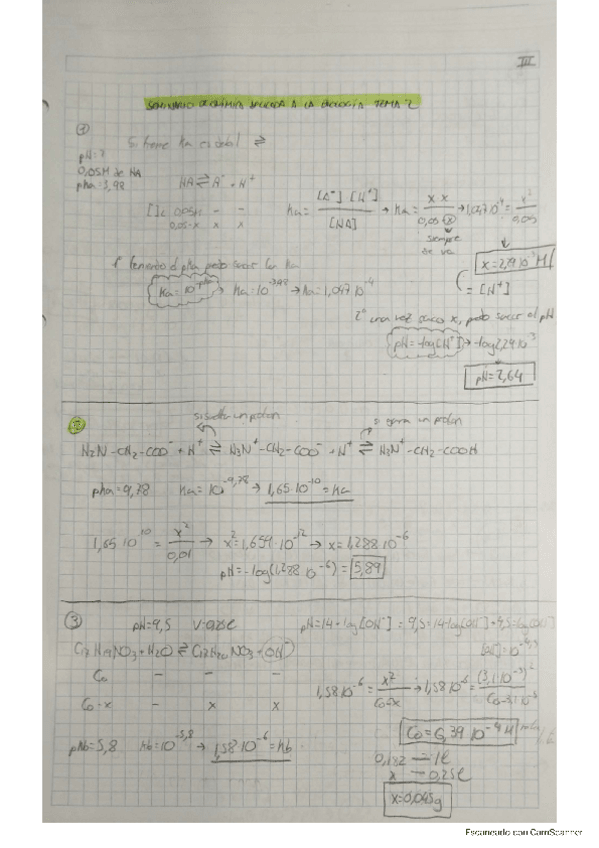 III
SEMINARIO DE QUÍMICA APLICADA A LA BIOLOGÍA TEMA 2
①
Si tiene Ka es débil ⇌
pH=?
0,05M de HA
pKa=3,98
HA ⇌ A⁻ + H⁺
[ ]i 0,05M – –
0,05-x x x
Ka = [A⁻] [H⁺] / [HA] → Ka = x x / 0,05-x → 1,047·10⁻⁴ = x² / 0,05
siempre
se va
x = 2,29·10⁻³ M
= [H⁺]
1º teniendo el pKa puedo sacar la Ka
Ka = 10^-pKa → Ka = 10^-3,98 → Ka = 1,047·10⁻⁴
2º una vez saco x, puedo sacar el pH
pH = -log[H⁺] → -log 2,29·10⁻³
pH = 2,64
②
si suelta un protón
si gana un protón
H₂N-CH₂-COO⁻ + H⁺ ⇌ H₃N⁺-CH₂-COO⁻ + H⁺ ⇌ H₃N⁺-CH₂-COOH
pKa = 9,78 Ka = 10^-9,78 → 1,65·10⁻¹⁰ = Ka
1,65·10⁻¹⁰ = x² / 0,01 → x² = 1,659·10⁻¹² → x = 1,288·10⁻⁶
pH = -log(1,288·10⁻⁶) = 5,89
③
pH = 9,5 V = 0,25L
pH = 14 + log[OH⁻] = 9,5 = 14 + log[OH⁻]
[OH⁻] = 10^-4,5
C₁₇H₁₉NO₃ + H₂O ⇌ C₁₇H₂₀NO₃ + OH⁻
C₀ – – –
C₀-x – x x
1,58·10⁻⁶ = x² / C₀-x → 1,58·10⁻⁶ = (3,1·10⁻⁵)² / C₀-3,1·10⁻⁵
C₀ = 6,39·10⁻⁴ M
pKb = 5,8 Kb = 10^-5,8 → 1,58·10⁻⁶ = Kb
0,182 — 1L
x — 0,25L
x = 0,045g
Escaneado con CamScanner